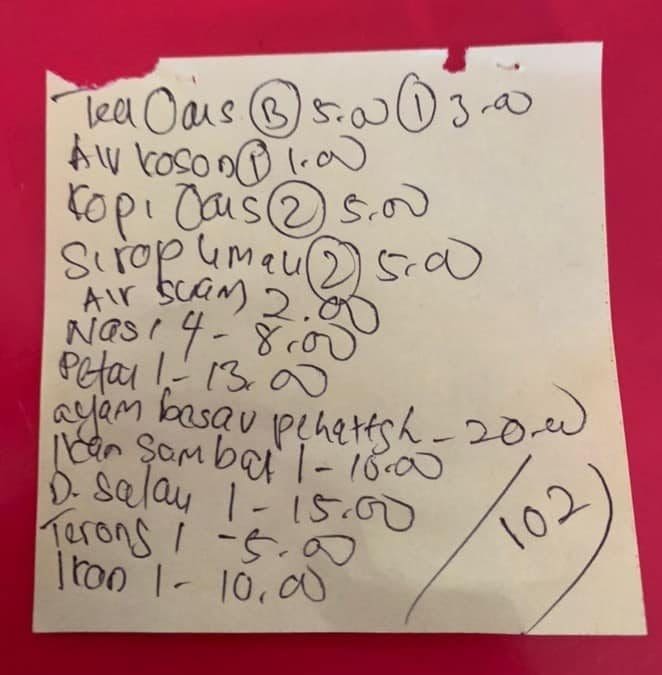 Tea Oais ③ 5.00 ① 3.00
Air kosong ① 1.00
Kopi Oais ② 5.00
Sirop limau ② 5.00
Air scam 2.00
Nasi 4 - 8.00
Petai 1 - 13.00
ayam besar - 20.00
Ikan Sambal 1 - 10.00
D. Salay 1 - 15.00
Terong 1 - 5.00
Iron 1 - 10.00
102